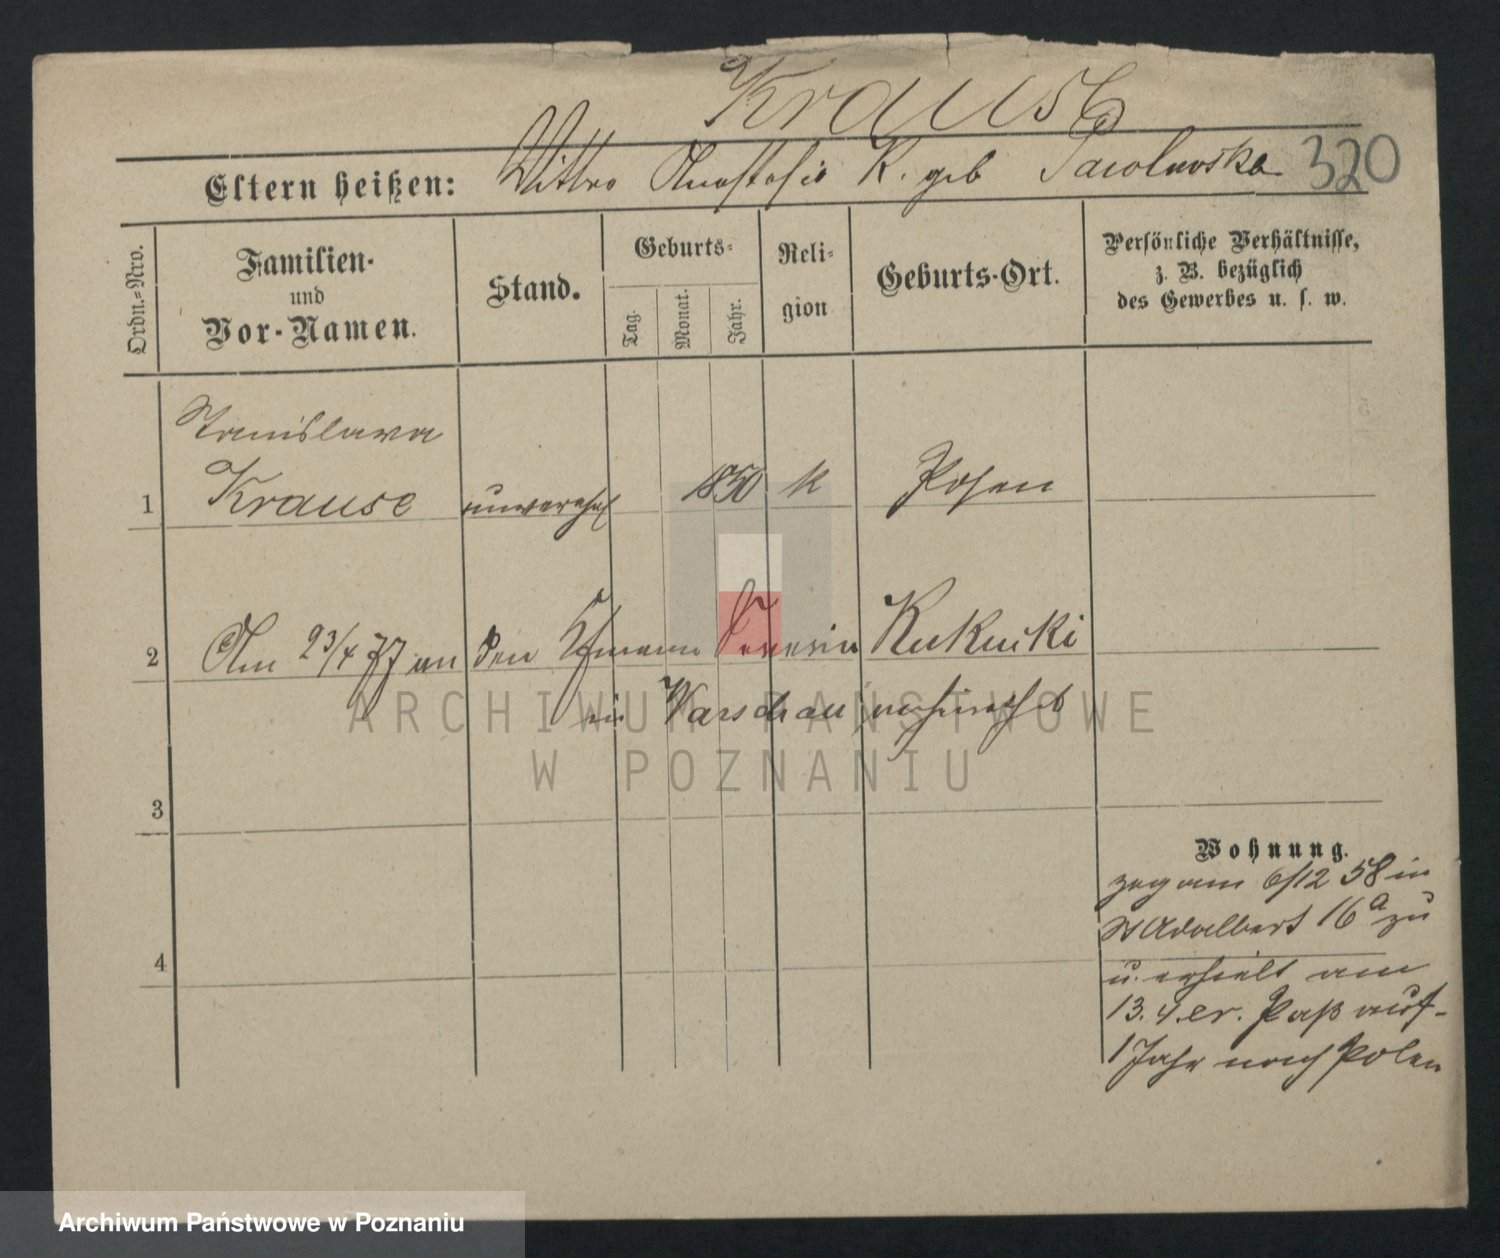 Krause
Eltern heißen: Wittwe Anastasia K. geb 320
Ordn.=Nro.
Familien-
und
Vor-Namen.
Stand.
Geburts-
Tag.
Monat.
Jahr.
Reli-
gion
Geburts-Ort.
Persönliche Verhältnisse,
z. B. bezüglich
des Gewerbes u. s. w.
Stanislawa
1 Krause unverehel 1850 k Posen
2 Am 23/4 77 an den Kfmann Severin Kukucki
in Warschau verheirathet
3
Wohnung.
zog am 6/12 58 in
St Adalbert 16a zu
4
u. erhielt am
13.4. cr. Paß auf
1 Jahr nach Polen
ARCHIWUM PAŃSTWOWE
W POZNANIU
Archiwum Państwowe w Poznaniu